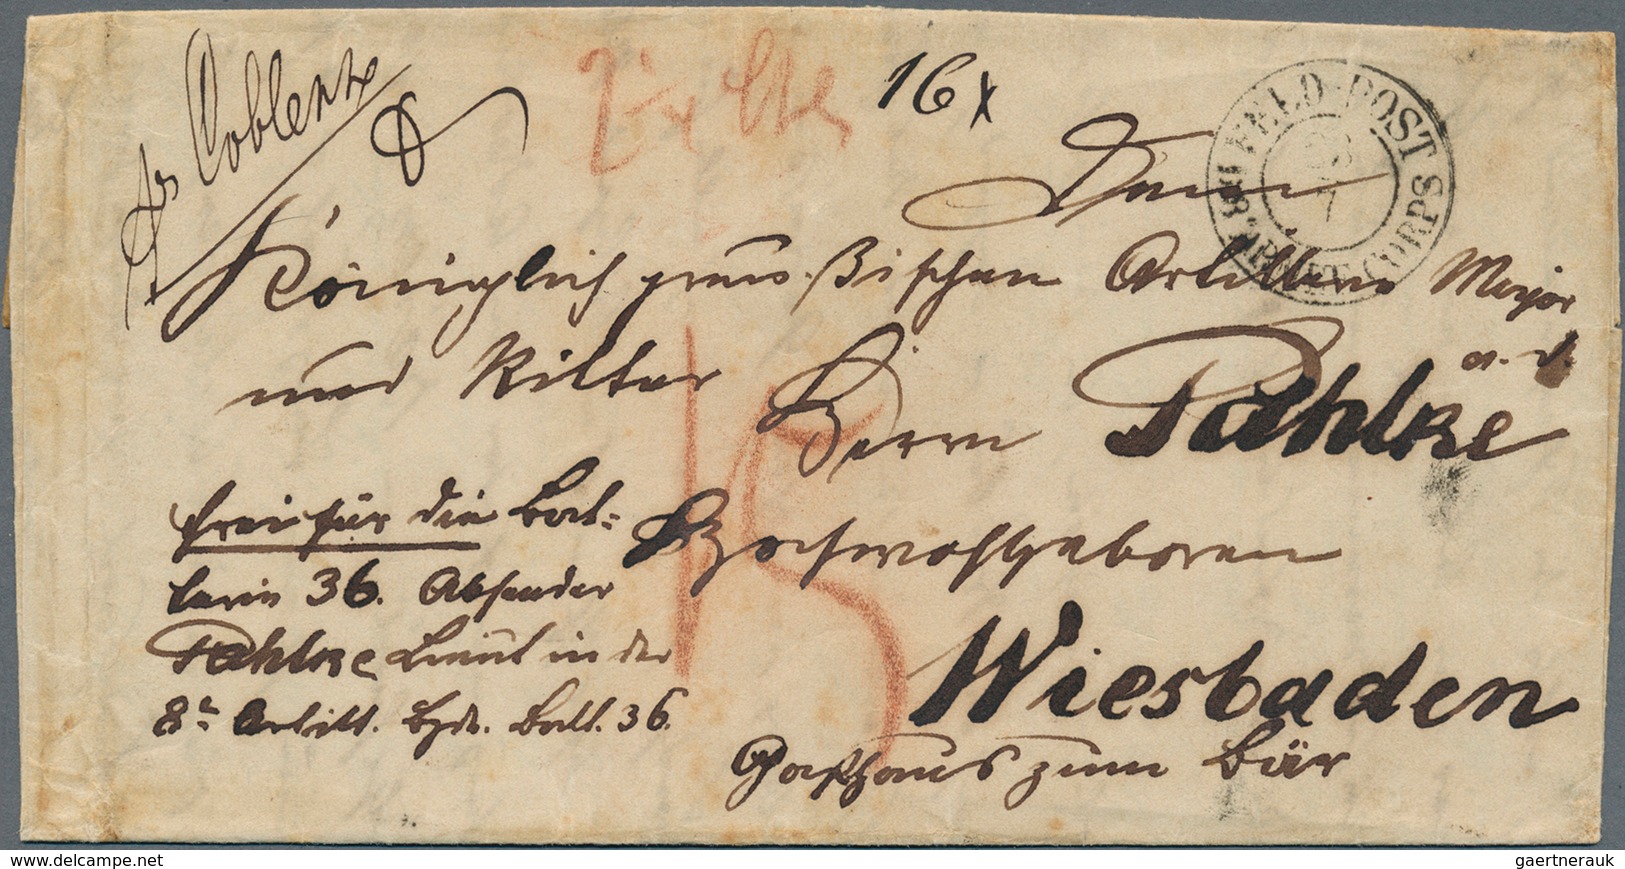 fr Coblenz
16 x
FELD-POST
8tes ARMEE CORPS
7
Dem
Königlich preussischen Artillerie Major
a. D.
und Ritter
Herrn Pahlke
Hochwohlgeboren
Wiesbaden
Gasthaus zum Bär
frei für die Bat-
terie 36. Absender
Pahlke Lieut in der
8t Artill. Bgde. Batt. 36.
delcampe.net
gaertnerauk